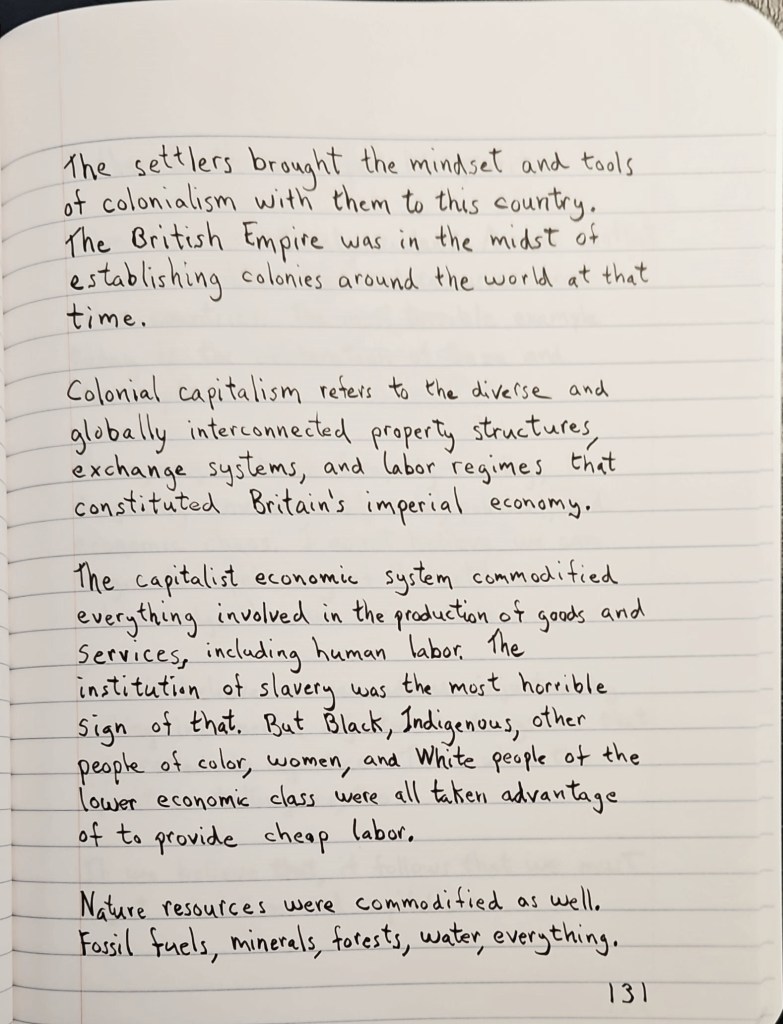 The settlers brought the mindset and tools
of colonialism with them to this country.
The British Empire was in the midst of
establishing colonies around the world at that
time.
Colonial capitalism refers to the diverse and
globally interconnected property structures,
exchange systems, and labor regimes that
constituted Britain's imperial economy.
The capitalist economic system commodified
everything involved in the production of goods and
services, including human labor. The
institution of slavery was the most horrible
sign of that. But Black, Indigenous, other
people of color, women, and White people of the
lower economic class were all taken advantage
of to provide cheap labor.
Nature resources were commodified as well.
Fossil fuels, minerals, forests, water, everything.
131